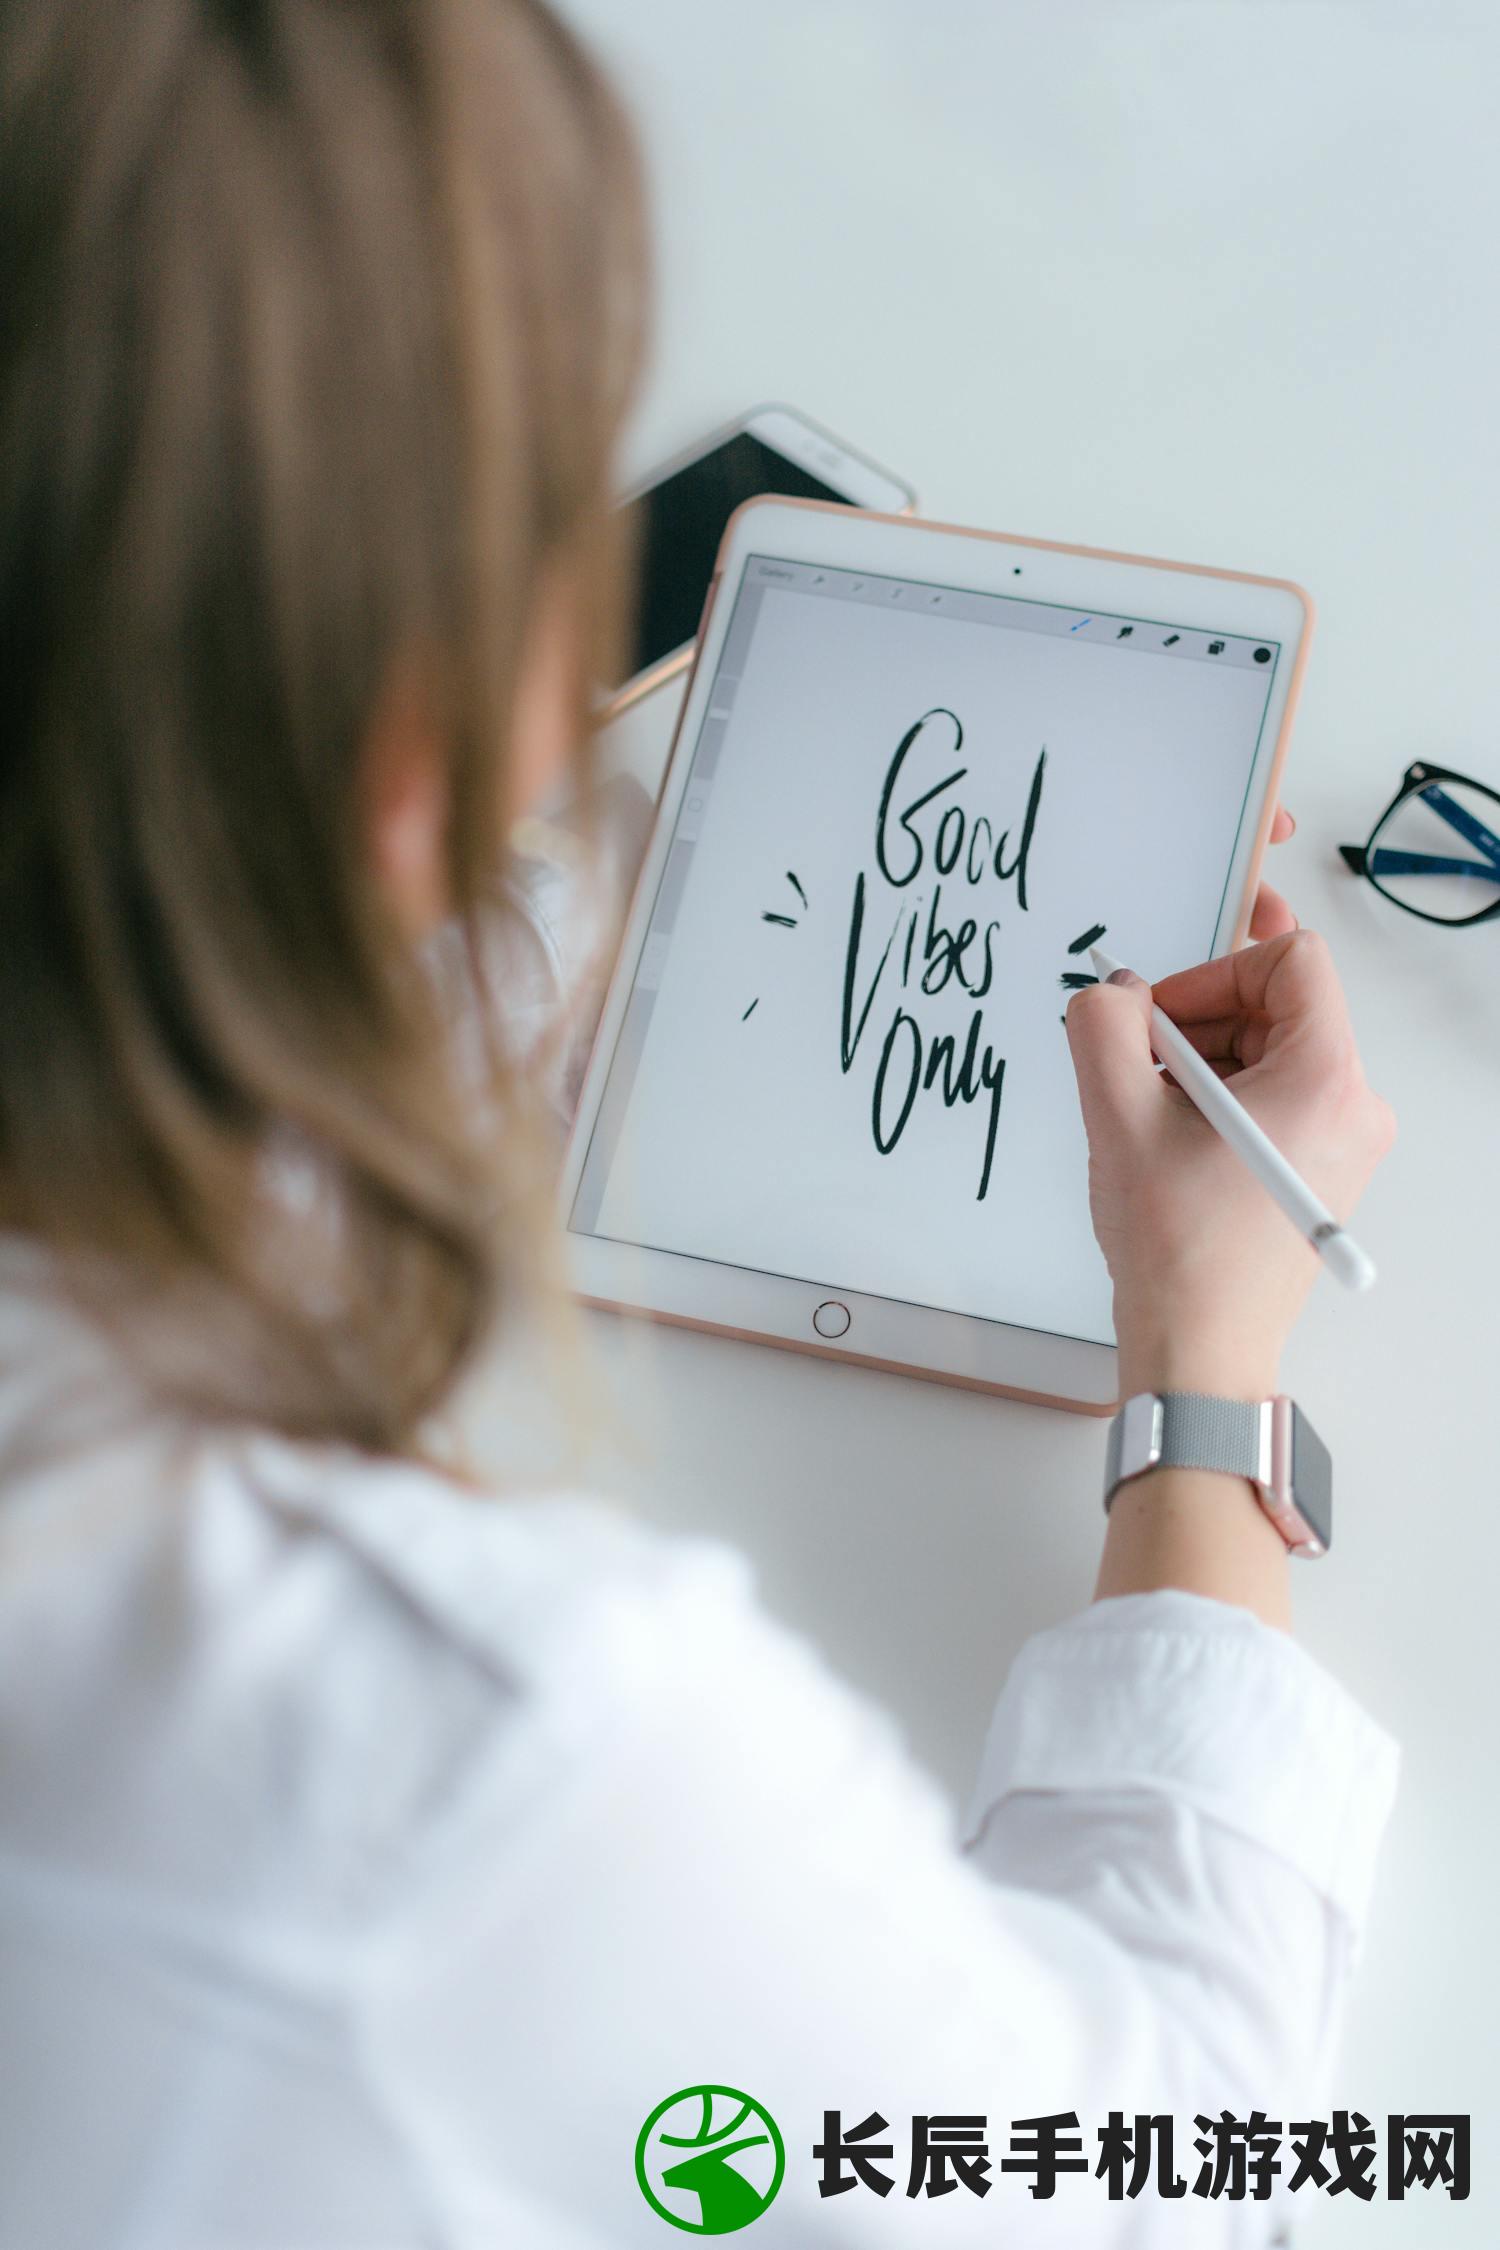 Gallery
Good
Vibes
Only
长辰手机游戏网